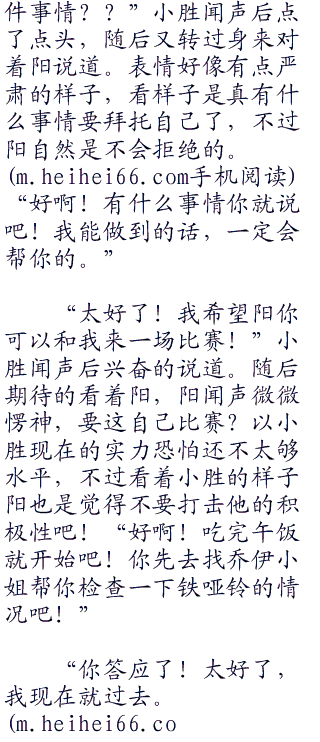 件事情？？”小胜闻声后点
了点头，随后又转过身来对
着阳说道。表情好像有点严
肃的样子，看样子是真有什
么事情要拜托自己了，不过
阳自然是不会拒绝的。
(m.heihei66.com手机阅读)
“好啊！有什么事情你就说
吧！我能做到的话，一定会
帮你的。”
“太好了！我希望阳你
可以和我来一场比赛！”小
胜闻声后兴奋的说道。随后
期待的看着阳，阳闻声微微
愣神，要这自己比赛？以小
胜现在的实力恐怕还不太够
水平，不过看着小胜的样子
阳也是觉得不要打击他的积
极性吧！“好啊！吃完午饭
就开始吧！你先去找乔伊小
姐帮你检查一下铁哑铃的情
况吧！”
“你答应了！太好了，
我现在就过去。
(m.heihei66.co